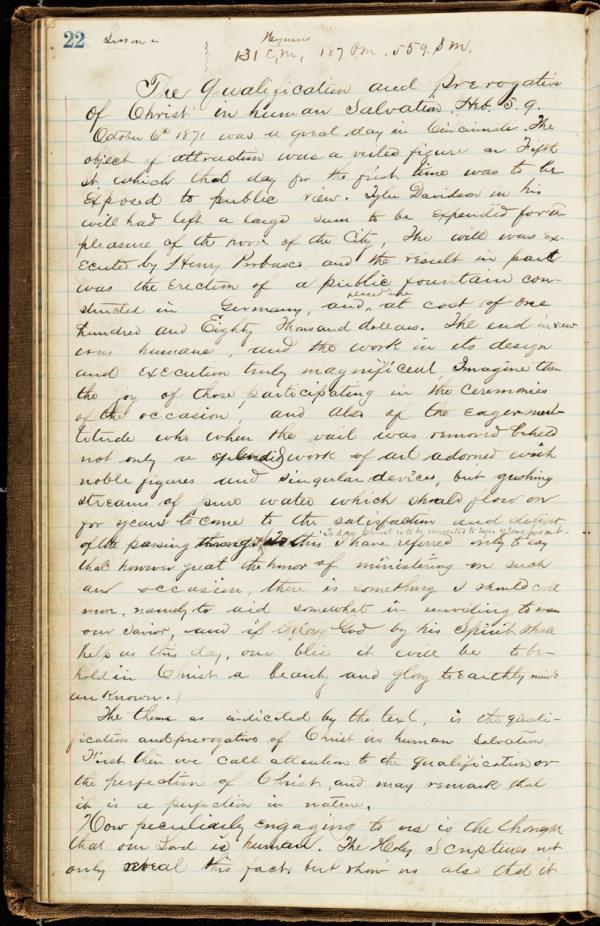 22 Lesson
Hymns
131 C.M. 187 P.M. 559. S.M.
The Qualification and prerogative
of Christ in human Salvation. Heb. 5. 9.
October 6th 1871 was a great day in Cincinnati. The
object of attraction was a veiled figure on Fifth
St. which that day for the first time was to be
exposed to public view. Tyler Davidson in his
will had left a large sum to be expended for the
pleasure of the poor of the City, The will was ex-
ecuted by Henry Probasco and the result in part
was the erection of a public fountain con-
structed in Germany, and placed here at cost of one
hundred and Eighty Thousand dollars. The end in view
was humane, and the work in its design
and execution truly magnificent. Imagine then
the joy of those participating in the ceremonies
of the occasion, and also of the eager mul-
titude who when the vail was removed beheld
not only a splendid work of art adorned with
noble figures and singular devices, but gushing
streams of pure water which should flow on
for years to come to the satisfaction and delight
of the passing throng. To this I have referred only to say
To day Christ is to be
that however great the honor of ministering on such
an occasion, there is something I should covet
more, namely to aid somewhat in unvailing to men
our Savior, and if God by his Spirit shall
help us this day, our bliss it will be to be-
hold in Christ a beauty and glory to Earthly minds
unknown.)
The theme as indicated by the text, is the quali-
fication and prerogative of Christ in human salvation.
First then we call attention to the qualification or
the perfection of Christ, and may remark that
it is a perfection in nature.
How peculiarly engaging to us is the thought
that our Lord is human. The Holy Scriptures not
only reveal this fact but show us also that it